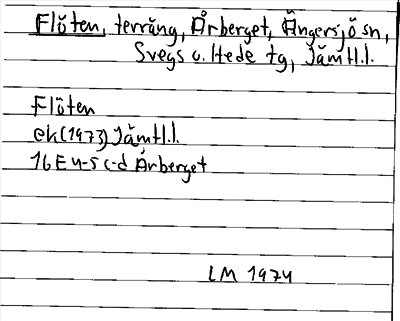 Flöten, terräng, Årberget, Ängersjösn,
Svegs o. Hede tg, Jämtl.l.
Flöten
ek (1973) Jämtl.l.
16E 4-5 c-d Årberget
LM 1974